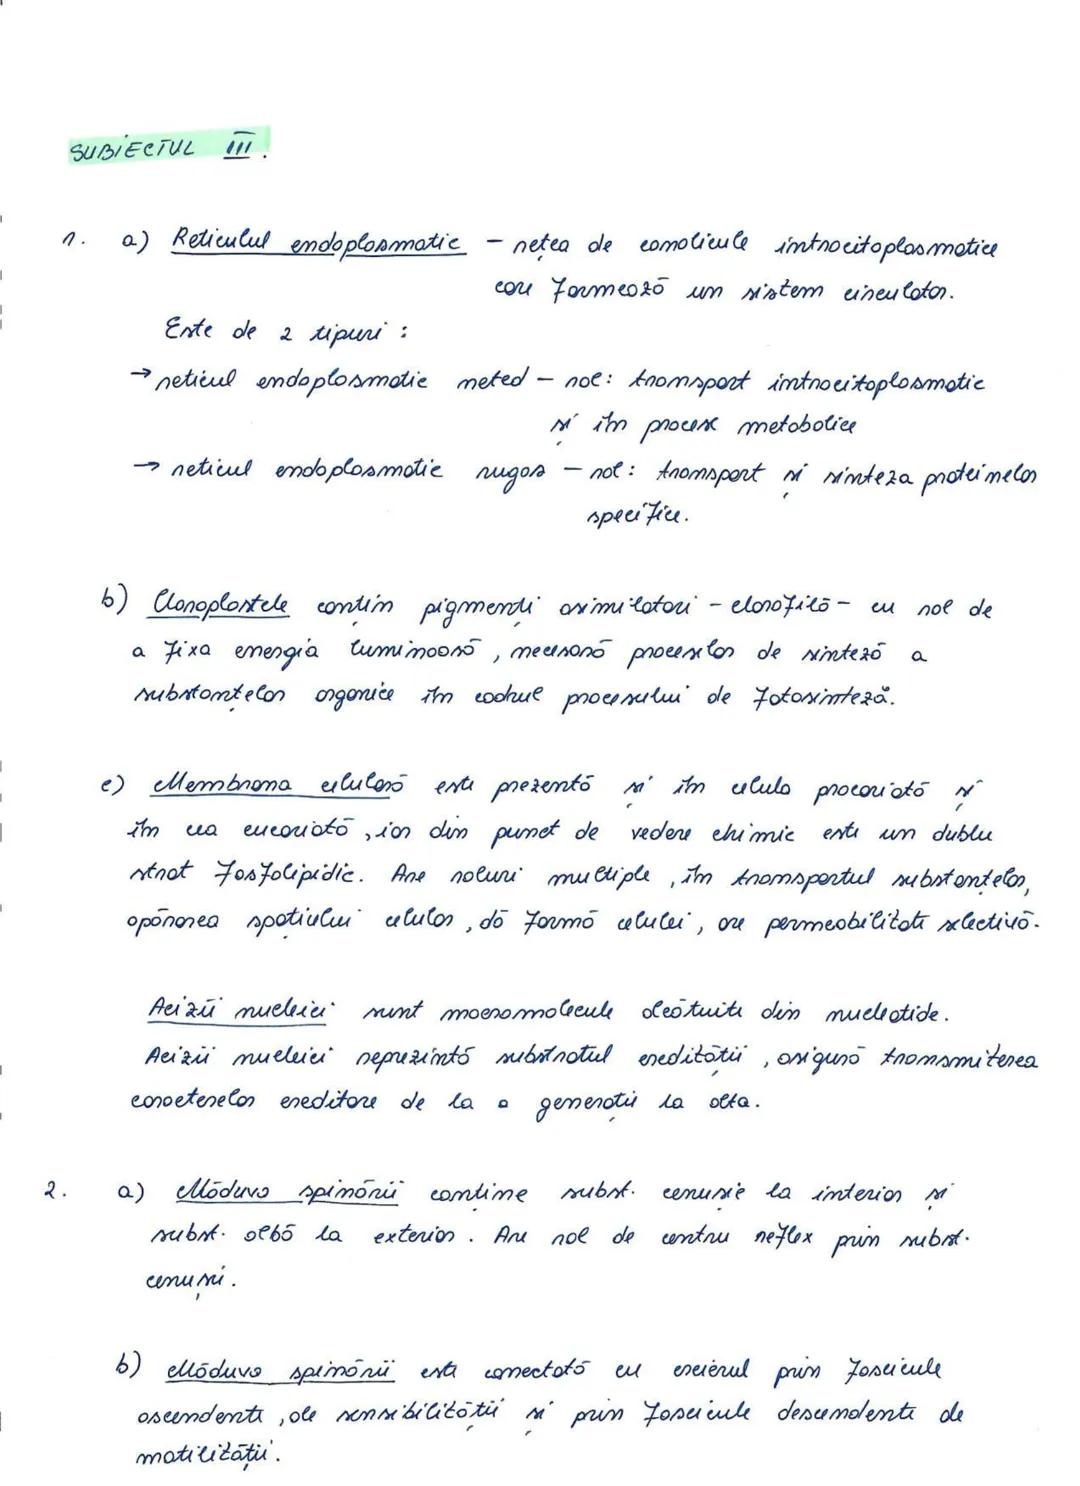 SUBIECTUL III.
1. a) Reticulul endoplasmatic – rețea de canalicule intracitoplasmatice
care formează un sistem circulator.
Este de 2 tipuri :
→ reticul endoplasmatic neted – rol: transport intracitoplasmatic
și în procese metabolice
→ reticul endoplasmatic rugos – rol: transport și sinteza proteinelor
specifice.
b) Cloroplastele conțin pigmenți asimilatori – clorofilă – cu rol de
a fixa energia luminoasă, necesară proceselor de sinteză a
substanțelor organice în cadrul procesului de fotosinteză.
c) Membrana celulară este prezentă și în celula procariotă și
în cea eucariotă, iar din punct de vedere chimic este un dublu
strat fosfolipidic. Are roluri multiple, în transportul substanțelor,
apărarea spațiului celular, dă formă celulei, are permeabilitate selectivă.
Acizii nucleici sunt macromolecule alcătuite din nucleotide.
Acizii nucleici reprezintă substratul eredității, asigură transmiterea
caracterelor ereditare de la o generație la alta.
2. a) Măduva spinării conține subst. cenușie la interior și
subst. albă la exterior. Are rol de centru reflex prin subst.
cenușii.
b) Măduva spinării este conectată cu creierul prin fascicule
ascendente, ale sensibilității și prin fascicule descendente de
motilității.